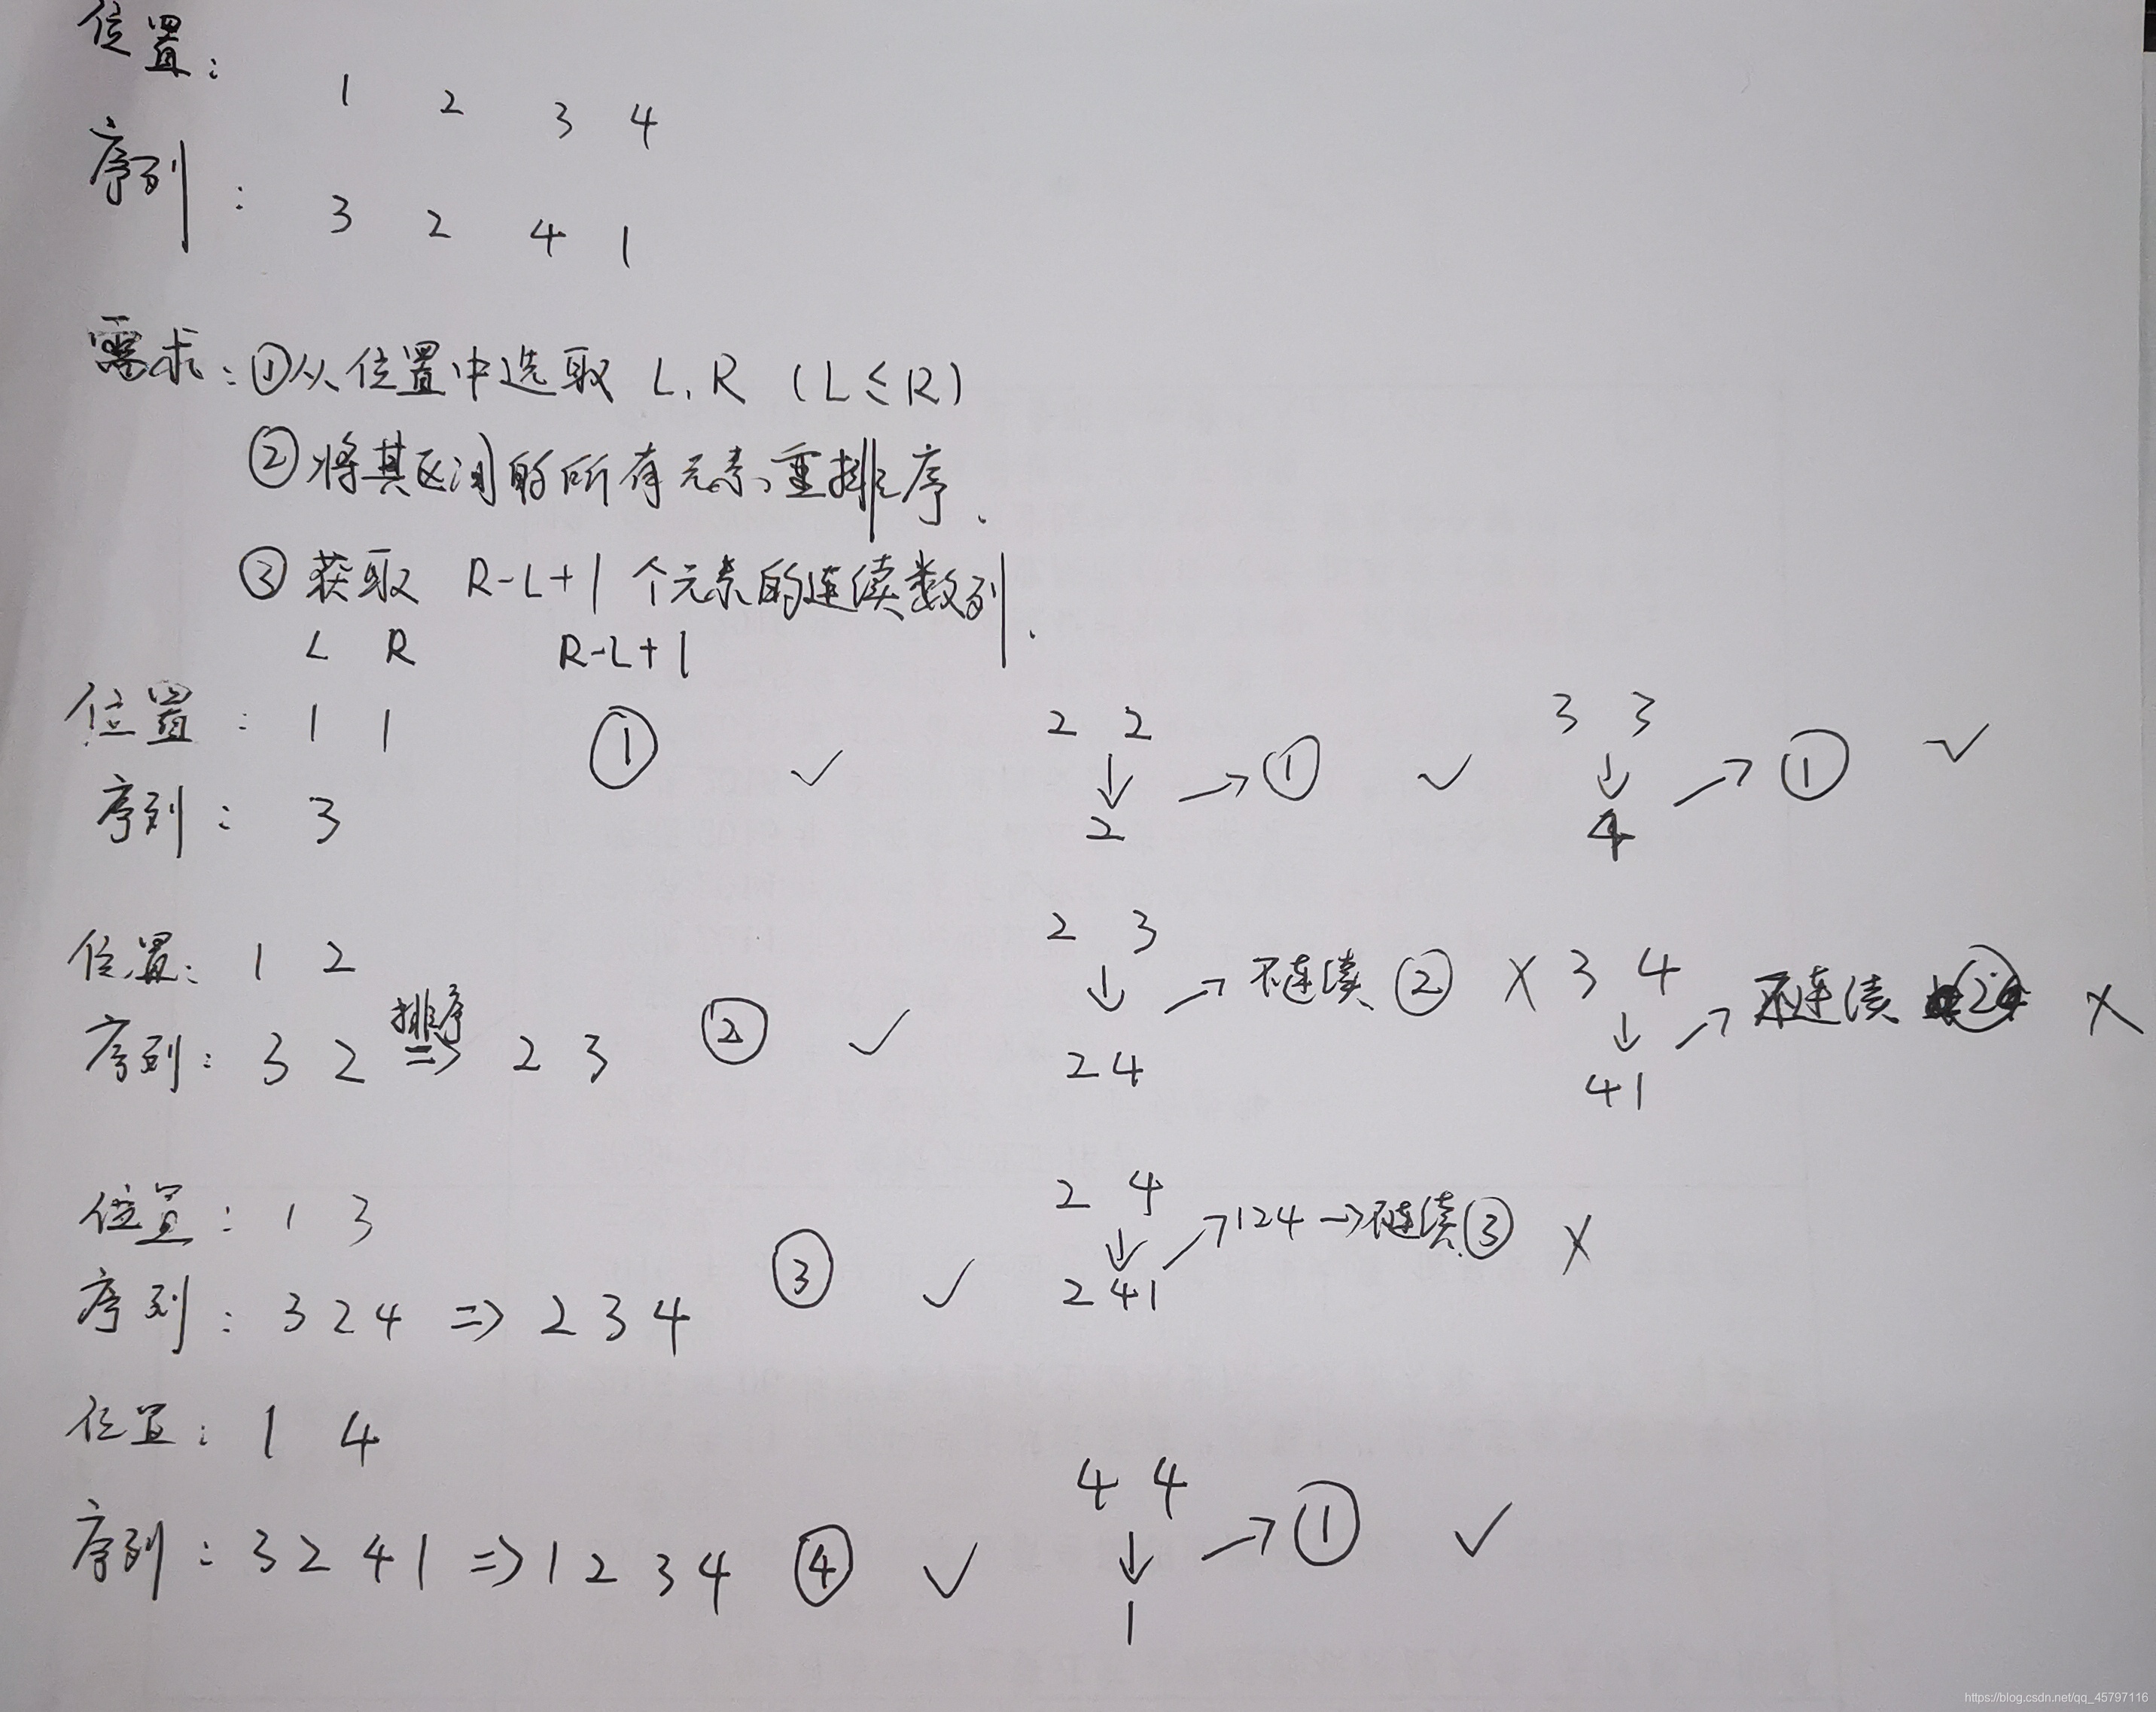 位置：
1 2 3 4
序列：
3 2 4 1
需求：①从位置中选取 L,R (L≤R)
②将其区间的所有元素重排序.
③获取 R-L+1 个元素的连续数列.
L R R-L+1
位置：1 1 ① ✓ 2 2 ↓ → ① ✓ 3 3 ↓ → ① ✓
序列：3 2 4
位置：1 2 2 3 ↓ → 不连续 ② X 3 4 ↓ → 不连续 ② X
序列：3 2 排序 => 2 3 ② ✓ 24 41
位置：1 3 ③ ✓ 2 4 ↓ → 124 → 不连续 ③ X
序列：3 2 4 => 2 3 4 241
位置：1 4 4 4 ↓ → ① ✓
序列：3 2 4 1 => 1 2 3 4 ④ ✓ 1
https://blog.csdn.net/qq_45797116